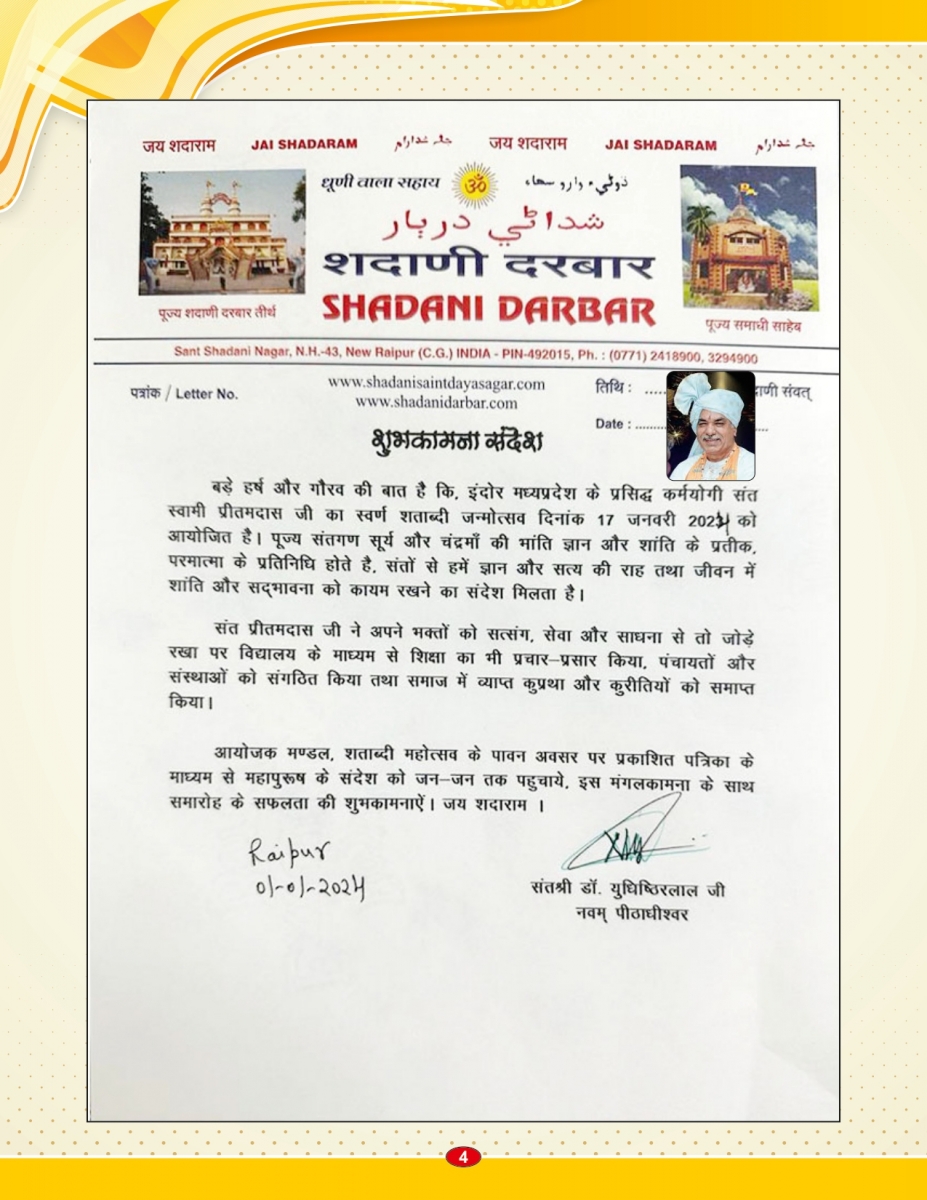 जय शदाराम JAI SHADARAM جئہ شدارام जय शदाराम JAI SHADARAM جئہ شدارام
धूणी वाला सहाय ॐ
شداڻي دربار
शदाणी दरबार
SHADANI DARBAR
पूज्य शदाणी दरबार तीर्थ
पूज्य समाधी साहेब
Sant Shadani Nagar, N.H.-43, New Raipur (C.G.) INDIA - PIN-492015, Ph. : (0771) 2418900, 3294900
पत्रांक / Letter No.
www.shadanisaintdayasagar.com
www.shadanidarbar.com
तिथि : ..... दाणी संवत्
Date : ........
शुभकामना संदेश
बड़े हर्ष और गौरव की बात है कि, इंदोर मध्यप्रदेश के प्रसिद्ध कर्मयोगी संत
स्वामी प्रीतमदास जी का स्वर्ण शताब्दी जन्मोत्सव दिनांक 17 जनवरी 2024 को
आयोजित है। पूज्य संतगण सूर्य और चंद्रमाँ की भांति ज्ञान और शांति के प्रतीक,
परमात्मा के प्रतिनिधि होते है, संतों से हमें ज्ञान और सत्य की राह तथा जीवन में
शांति और सद्‌भावना को कायम रखने का संदेश मिलता है।
संत प्रीतमदास जी ने अपने भक्तों को सत्संग, सेवा और साधना से तो जोड़े
रखा पर विद्यालय के माध्यम से शिक्षा का भी प्रचार–प्रसार किया, पंचायतों और
संस्थाओं को संगठित किया तथा समाज में व्याप्त कुप्रथा और कुरीतियों को समाप्त
किया।
आयोजक मण्डल, शताब्दी महोत्सव के पावन अवसर पर प्रकाशित पत्रिका के
माध्यम से महापुरूष के संदेश को जन–जन तक पहुचाये, इस मंगलकामना के साथ
समारोह के सफलता की शुभकामनाऐं। जय शदाराम ।
Raipur
01-01-2024
संतश्री डॉ. युधिष्ठिरलाल जी
नवम् पीठाधीश्वर
4